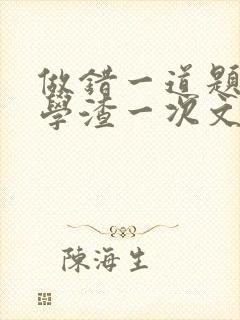 做錯一道題
學渣一次文
陳海生